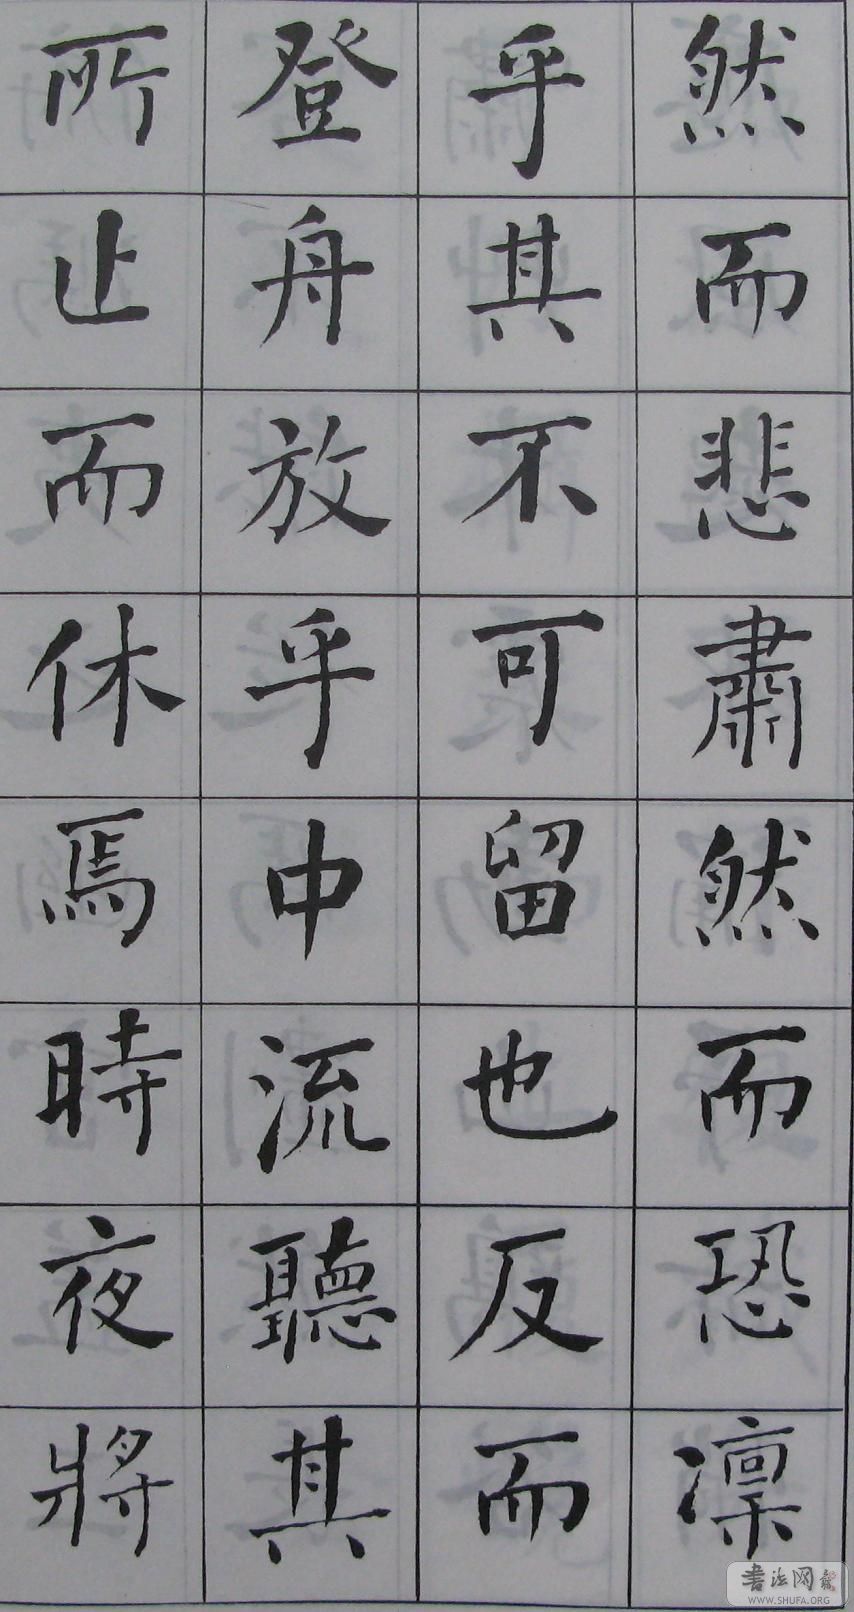 然而悲肅然而恐凛
乎其不可留也反而
登舟放乎中流聽其
所止而休焉時夜將
書法网
WWW.SHUFA.ORG